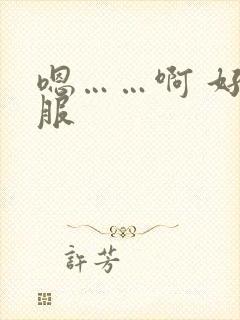 嗯……啊 好
服
許芳